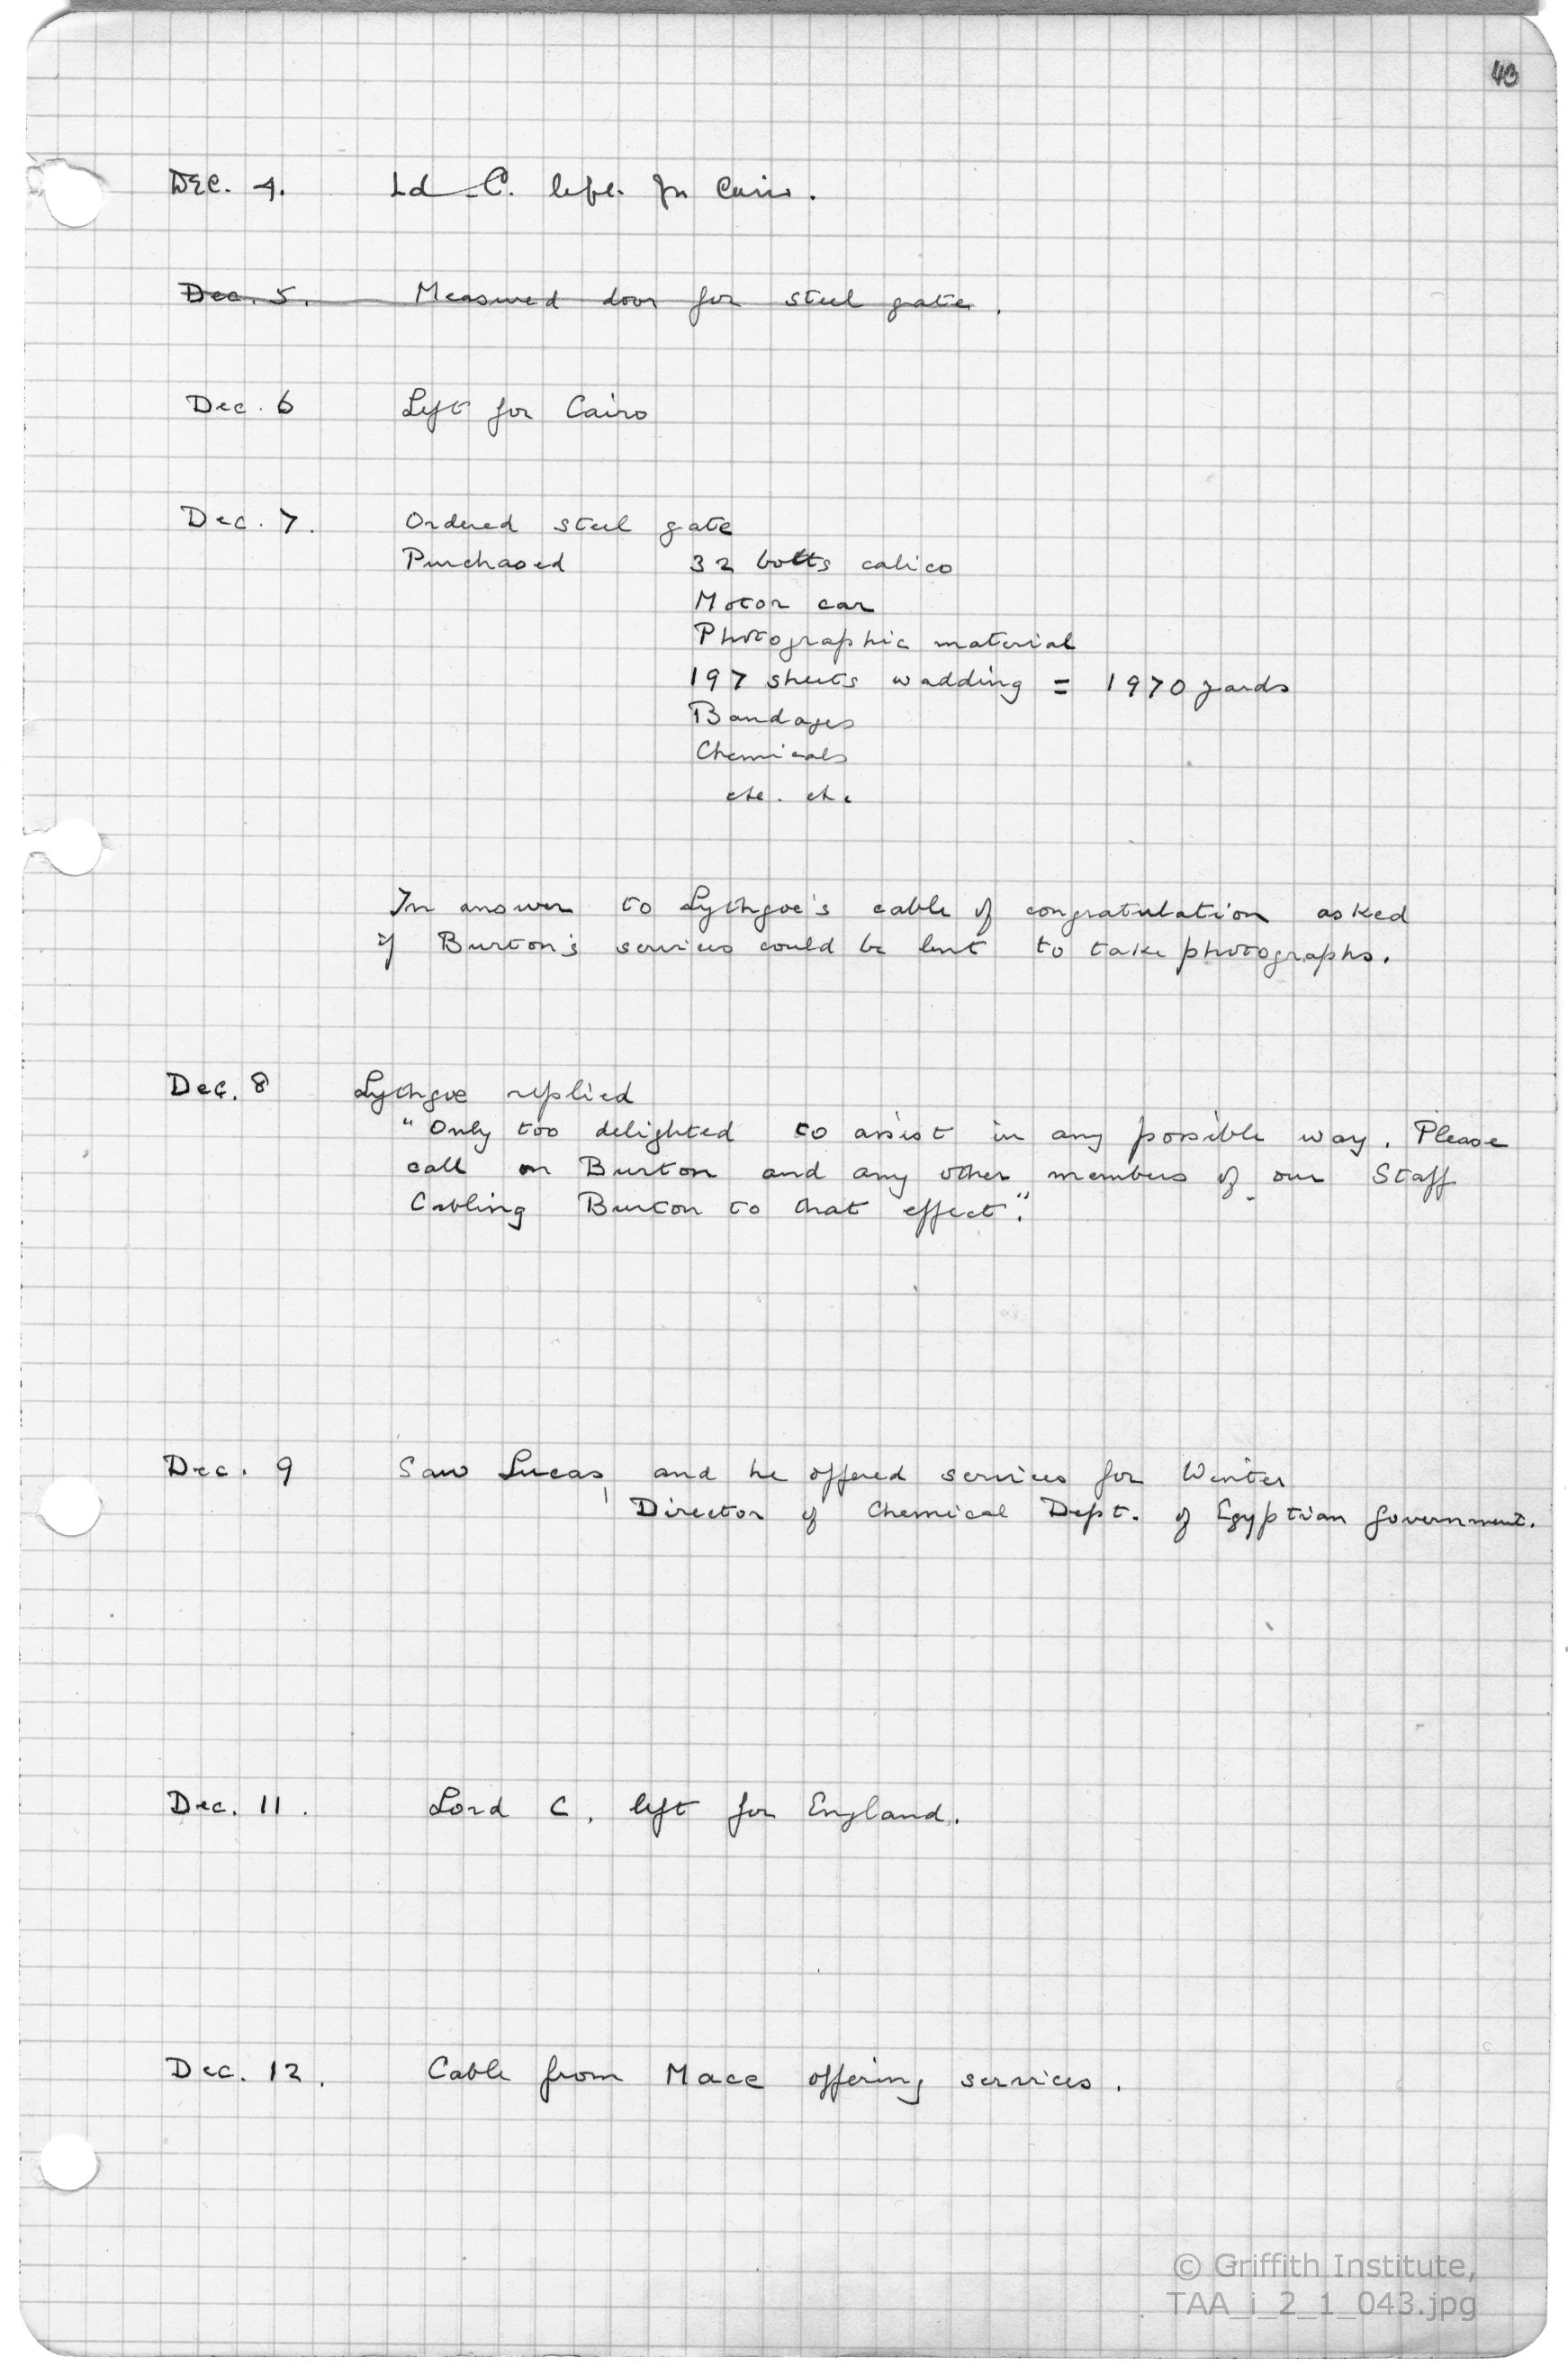 43
DEC. 4. Ld. C. left for Cairo.
Dec. 5. Measured door for steel gate.
Dec. 6 Left for Cairo
Dec. 7. Ordered steel gate
Purchased 32 bolts calico
Motor car
Photographic material
197 sheets wadding = 1970 yards
Bandages
Chemicals
etc. etc
In answer to Lythgoe's cable of congratulation asked
if Burton's services could be lent to take photographs.
Dec. 8 Lythgoe replied
"Only too delighted to assist in any possible way. Please
call on Burton and any other members of our Staff.
Cabling Burton to that effect."
Dec. 9 Saw Lucas, and he offered services for Winter
Director of Chemical Dept. of Egyptian Government.
Dec. 11. Lord C. left for England.
Dec. 12. Cable from Mace offering services.
© Griffith Institute,
TAA_i_2_1_043.jpg